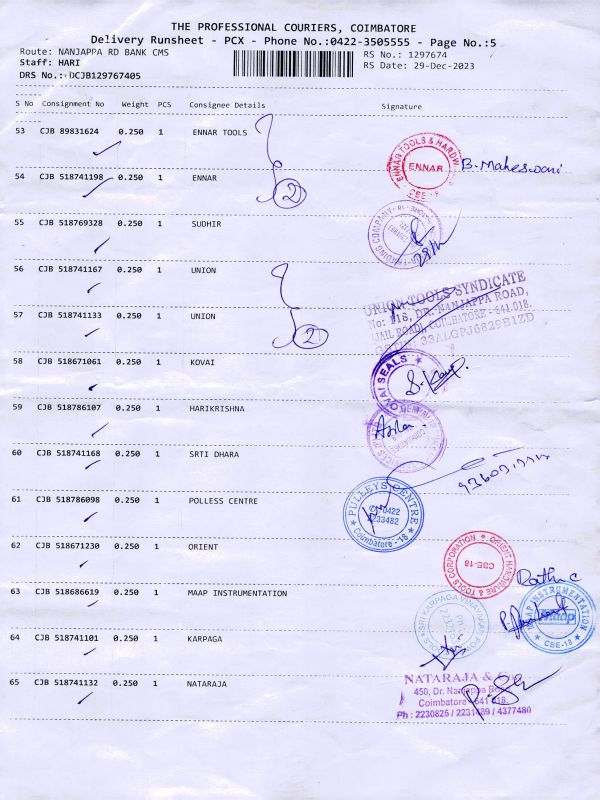 THE PROFESSIONAL COURIERS, COIMBATORE
Delivery Runsheet - PCX - Phone No.:0422-3505555 - Page No.:5
Route: NANJAPPA RD BANK CMS
RS No.: 1297674
Staff: HARI
RS Date: 29-Dec-2023
DRS No.: DCJB129767405
S No Consignment No Weight PCS Consignee Details Signature
53 CJB 89831624 0.250 1 ENNAR TOOLS
ENNAR TOOLS & HARDW
ENNAR
CBE
B. Maheswari
54 CJB 518741198 0.250 1 ENNAR
2
55 CJB 518769328 0.250 1 SUDHIR
56 CJB 518741167 0.250 1 UNION
UNION TOOLS SYNDICATE
No: 118, DR. NANJAPPA ROAD,
(JAIL ROAD), COIMBATORE - 641 018.
33ALGPJ6829B1ZD
57 CJB 518741133 0.250 1 UNION
2
58 CJB 518671061 0.250 1 KOVAI
KOVAI SEALS
59 CJB 518786107 0.250 1 HARIKRISHNA
60 CJB 518741168 0.250 1 SRTI DHARA
61 CJB 518786098 0.250 1 POLLESS CENTRE
PULLEYS CENTRE
0422
2233482
Coimbatore - 18
62 CJB 518671230 0.250 1 ORIENT
ORIENT HARDWARE & TOOLS CORPORATION
CBE-18
63 CJB 518686619 0.250 1 MAAP INSTRUMENTATION
MAAP INSTRUMENTATION
maap
CBE-18
64 CJB 518741101 0.250 1 KARPAGA
65 CJB 518741132 0.250 1 NATARAJA
NATARAJA & Co.,
450, Dr. Nanjappa Road,
Coimbatore - 641 018.
Ph : 2230825 / 2231489 / 4377480